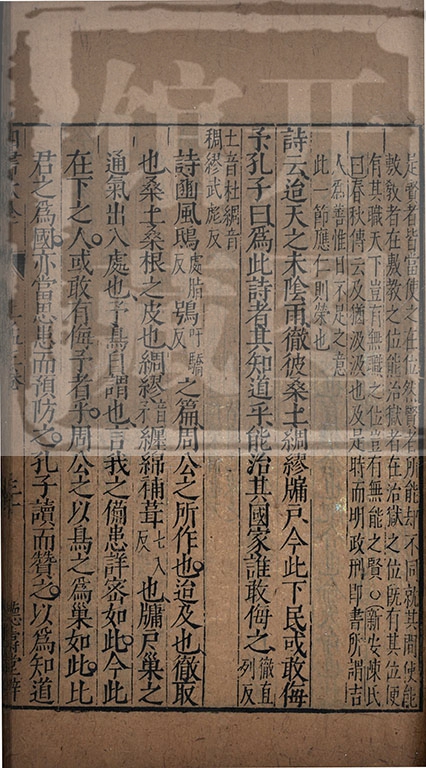 是賢者皆當使之在位然賢者所能却不同就其間使能
敷敎者在敷敎之位能治獄者在治獄之位旣有其位便
有其職天下豈有無職之位豈有無能之賢○新安陳氏
曰春秋傳云及猶汲汲也及是時而明政刑即書所謂吉
人爲善惟日不足之意
此一節應仁則榮也
詩云迨天之未陰雨徹彼桑土綢繆牖戶今此下民或敢侮
予孔子曰爲此詩者其知道乎能治其國家誰敢侮之徹直列反
土音杜綢音
稠繆武彪反
詩豳風鴟處脂反鴞吁驕反之篇周公之所作也迨及也徹取
也桑土桑根之皮也綢繆纏綿補葺七入反也牖戶巢之
通氣出入處也予鳥自謂也言我之備患詳審如此今此
在下之人或敢有侮予者乎周公以鳥之爲巢如此比
君之爲國亦當思患而預防之孔子讀而贊之以爲知道